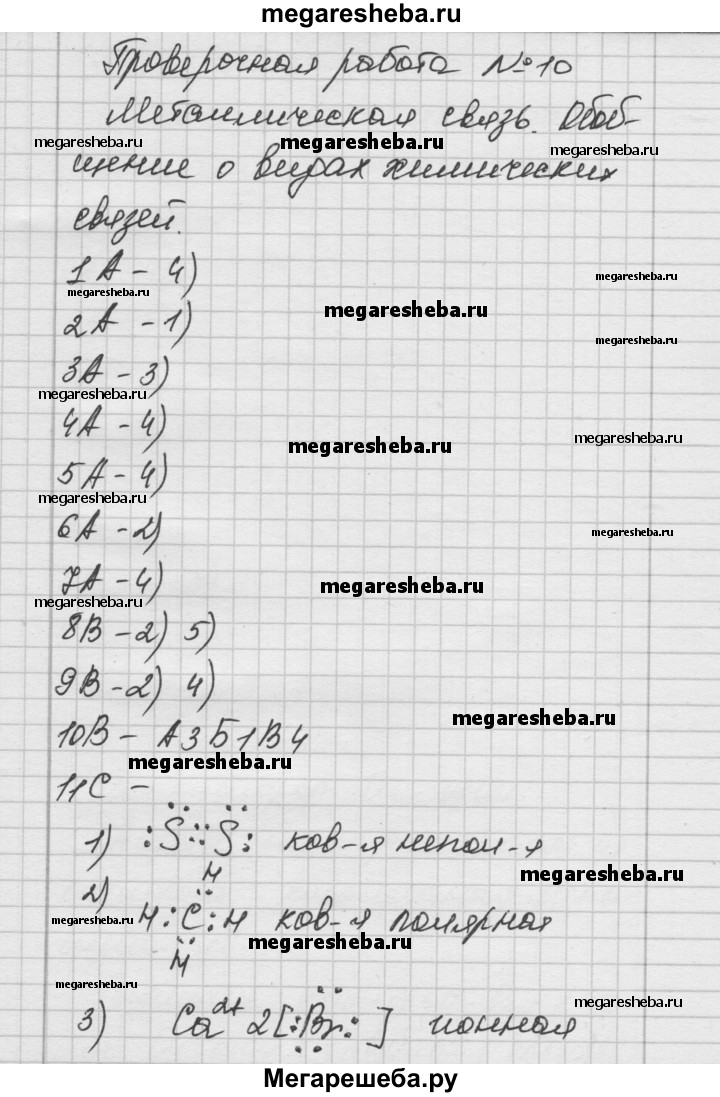 megaresheba.ru
Проверочная работа №10
Металлическая связь. Обоб-
megaresheba.ru megaresheba.ru megaresheba.ru
щение о видах химических
связей.
1А - 4)
megaresheba.ru megaresheba.ru
megaresheba.ru
2А - 1)
megaresheba.ru
3А - 3)
megaresheba.ru
4А - 4)
megaresheba.ru megaresheba.ru
5А - 4)
megaresheba.ru
6А - 2)
megaresheba.ru
7А - 4)
megaresheba.ru megaresheba.ru
8В - 2) 5)
9В - 2) 4)
megaresheba.ru
10В - А3Б1В4
megaresheba.ru
11С -
1) :S::S: ков-я непол-я
megaresheba.ru
2) H
H:C:H ков-я полярная
megaresheba.ru megaresheba.ru
H
megaresheba.ru
3) Ca2+ 2[:Br:] ионная
megaresheba.ru
Мегарешеба.ру